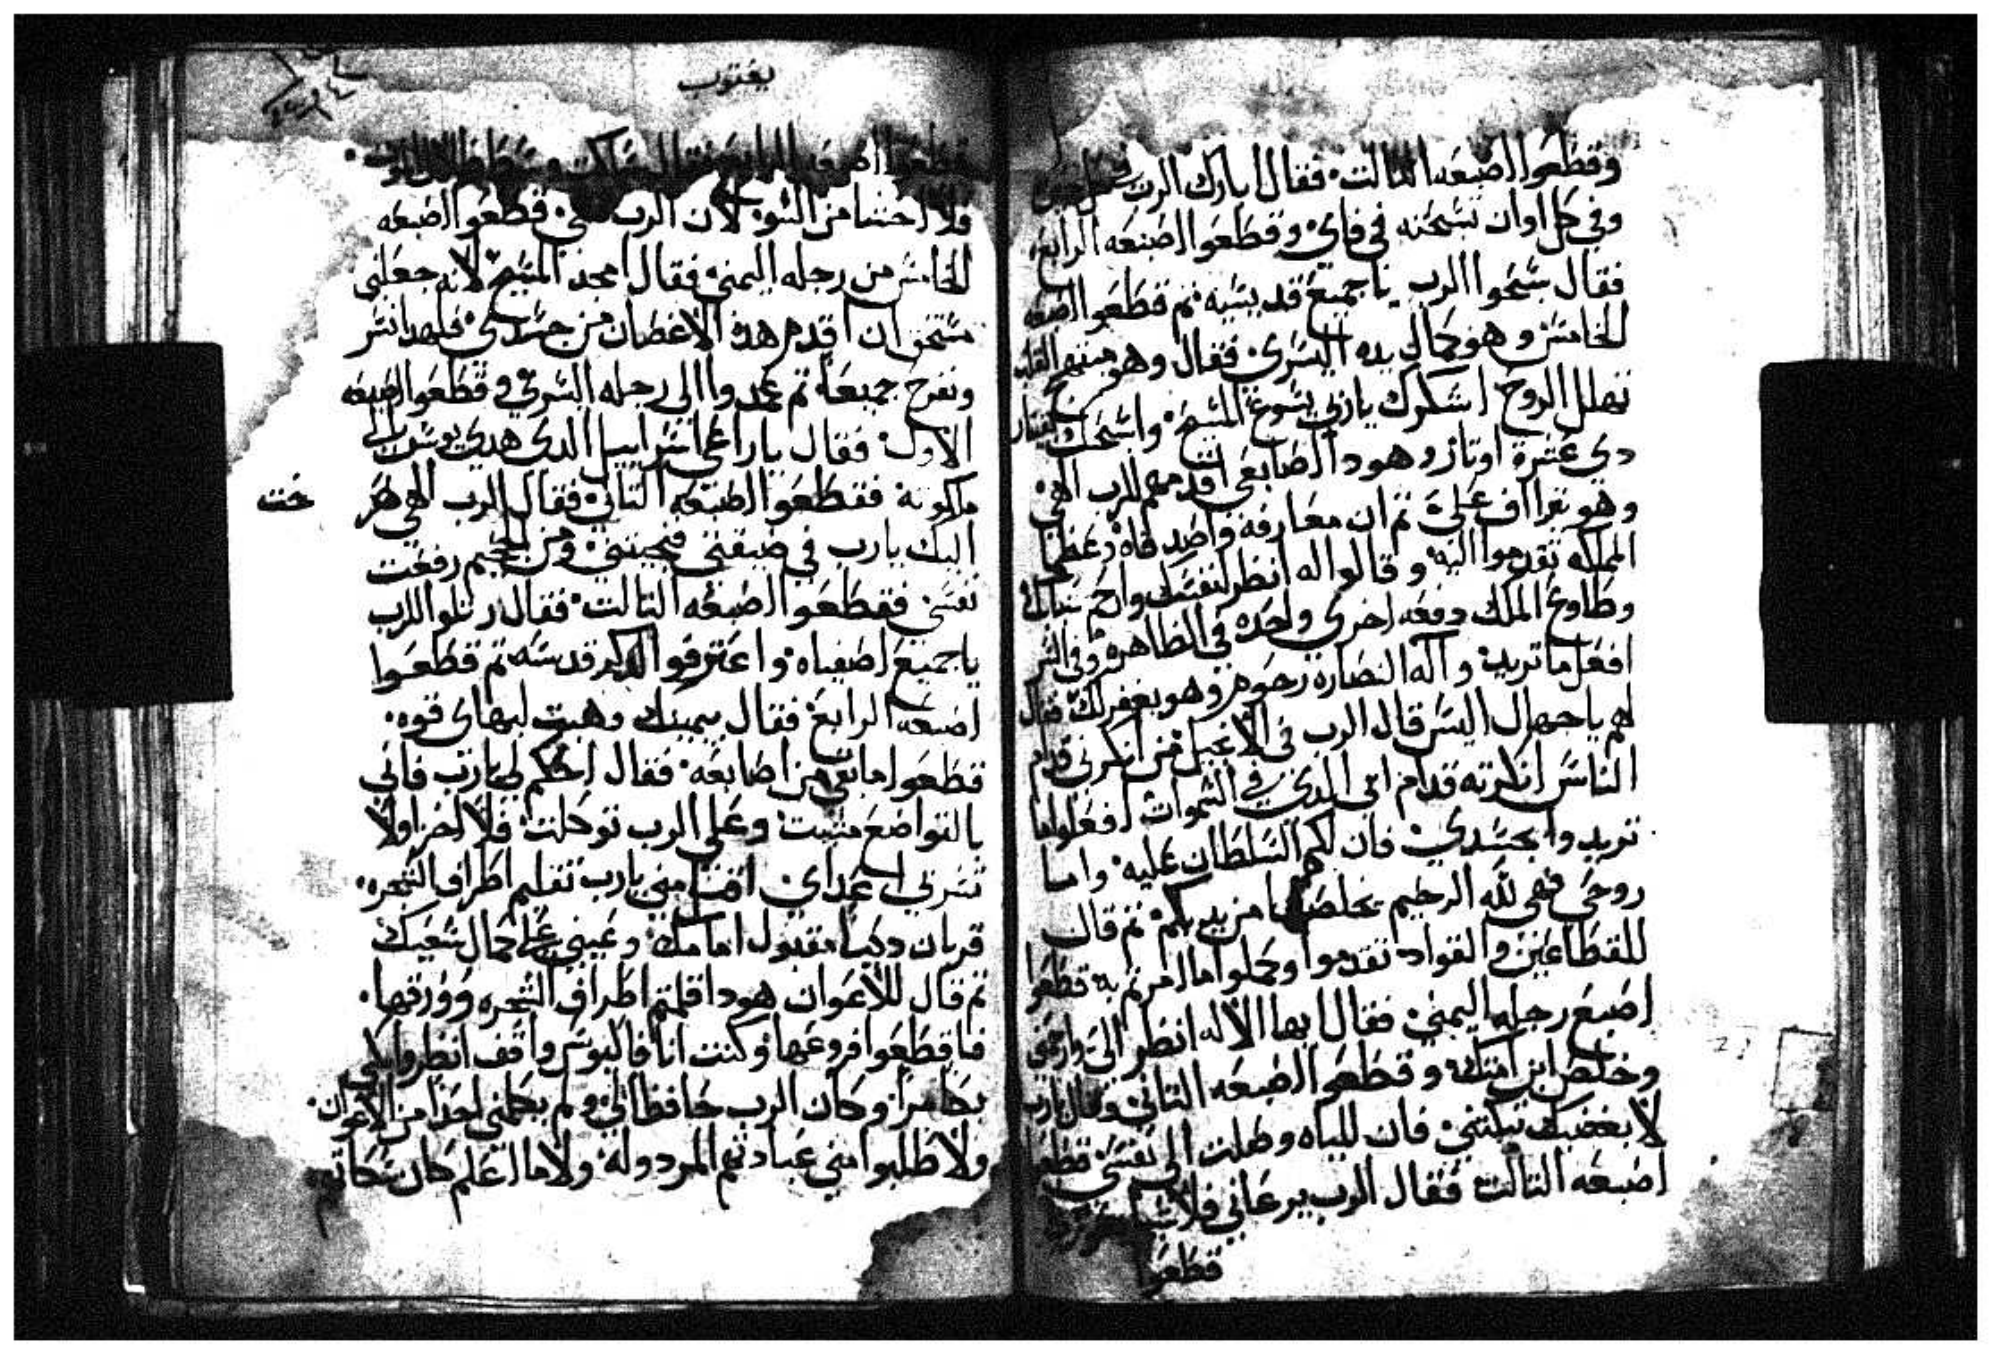 وقطعوا اصبعه التالت فقال ابارك الرب في كل حين
وفي كل اوان تسبحته في فاي وقطعوا اصبعه الرابع
فقال سبحوا الرب يا جميع قديسيه تم قطعوا اصبعه
الخامس وهو كمال يده اليسرى فقال وهو
تهلل الروح اشكرك يا ربي يسوع المسيح واسبحك
دي عشرة اوتار وهودا اصابعي اقدمهم للرب الهي
وهو يتراف علي تم ان معارفه واصدقاه وعظما
المملكه تقدموا اليه وقالوا له انظر لنفسك وارحم شبابك
وطاوع الملك دفعه اخرى واحده في الظاهره وفي السر
افعل ما تريد واله النصاره رحوم وهو يغفر لك فقال
لهم يا جهال اليس قال الرب في الانجيل من انكرني قدام
الناس انكرته قدام ابي الدي في السموات افعلوا ما
تريدوا بجسدي فان لكم السلطان عليه واما
روحي فهي لله الرحيم يخلصها من يديكم تم قال
للقطاعين والقواد تقدموا وكملوا ما امرتم به قطعوا
اصبع رجله اليمنى فقال ايها الاله انظر الي وارحمني
وخلص ابن امتك وقطعوا اصبعه التاني وقال يارب
لا بغضبك تبكتني فان المياه وصلت الى نفسي قطعوا
اصبعه التالت فقال الرب يرعاني فلا
قطعوا
يعقوب
قطعوا اصبعه الرابع
ولا اخشا من السوء لان الرب معي قطعوا اصبعه
الخامس من رجله اليمنى فقال امجد المسيح لانه جعلني
مستحق ان اقدم هده الاغصان من جسدي فلهدا نسر
ونفرح جميعا تم عمدوا الى رجله اليسرى وقطعوا اصبعه
الاول فقال يا راعي اسراييل الدي هدي يوسف
فقطعوا اصبعه التاني فقال الرب الهي
اليك يارب في ضيقتي فنجيتني ومن الجحيم رفعت
نفسي فقطعوا اصبعه التالت فقال رتلوا للرب
يا جميع اصفياه واعترفوا لدكر قدسه تم قطعوا
اصبعه الرابع فقال بيمينك وهبت لبهاي قوه
قطعوا ما بقي من اصابعه فقال احكم لي يارب فاني
بالتواضع مشيت وعلى الرب توكلت فلا اخزا ولا
تسر بي اعداي اقبل مني يارب تقليم اطراف الشجره
قربان دكيا مقبول امامك وعيني على كمال شعبك
تم قال للاعوان هودا قلمتم اطراف الشجره وورقها
فاقطعوا فروعها وكنت انا فاكيوس واقف انظر وابكي
بكا مرا وكان الرب حافظا لي ولم يكلمني احدا من الاعوان
ولا طلبوا مني عبادتهم المردوله ولا ما اعلم كان